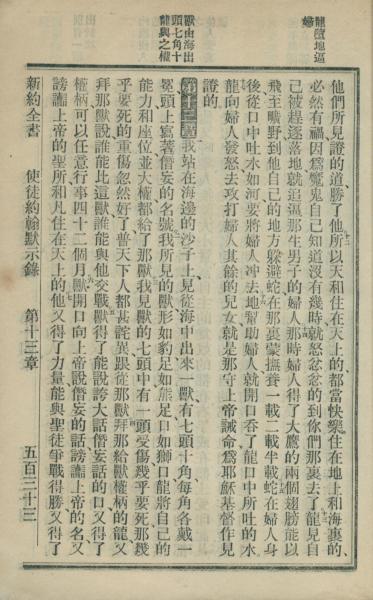 龍墮地逼
婦
獸由海出
頭七角十
龍與之權
他們所見證的道勝了他所以天和住在天上的都當快樂住在地上和海裏的
必然有禍因爲魔鬼自己知道沒有幾時就怒忿忿的到你們那裏去了龍見自
己被趕逐落地就追逼那生男子的婦人那時婦人得了大鷹的兩個翅膀能以
飛至曠野到他自己的地方躱避蛇在那裏蒙撫養一載二載半載蛇在婦人身
後從口中吐水如河要將婦人冲去地幫助婦人就開口吞了龍口中所吐的水
龍向婦人發怒去攻打婦人其餘的兒女就是那守上帝誡命爲耶穌基督作見
證的
第十三章我站在海邊的沙子上見從海中出來一獸有七頭十角每角各戴一
冕頭上寫著僭妄的名號我所見的獸形如豹足如熊足口如獅口龍將自己的
能力和座位並大權都給了那獸我見獸的七頭中有一頭受傷幾乎要死那幾
乎要死的重傷忽然好了普天下人都甚詫異跟從那獸又拜那給獸權柄的龍又
拜那獸說誰能比這獸誰能與他交戰獸得了能說誇大話僭妄話的口又得了
權柄可以任意行事四十二個月獸開口向上帝說僭妄的話謗讟上帝的名又
謗讟上帝的聖所和凡住在天上的他又得了力量能與聖徒爭戰得勝又得了
新約全書 使徒約翰默示錄 第十三章 五百三十三